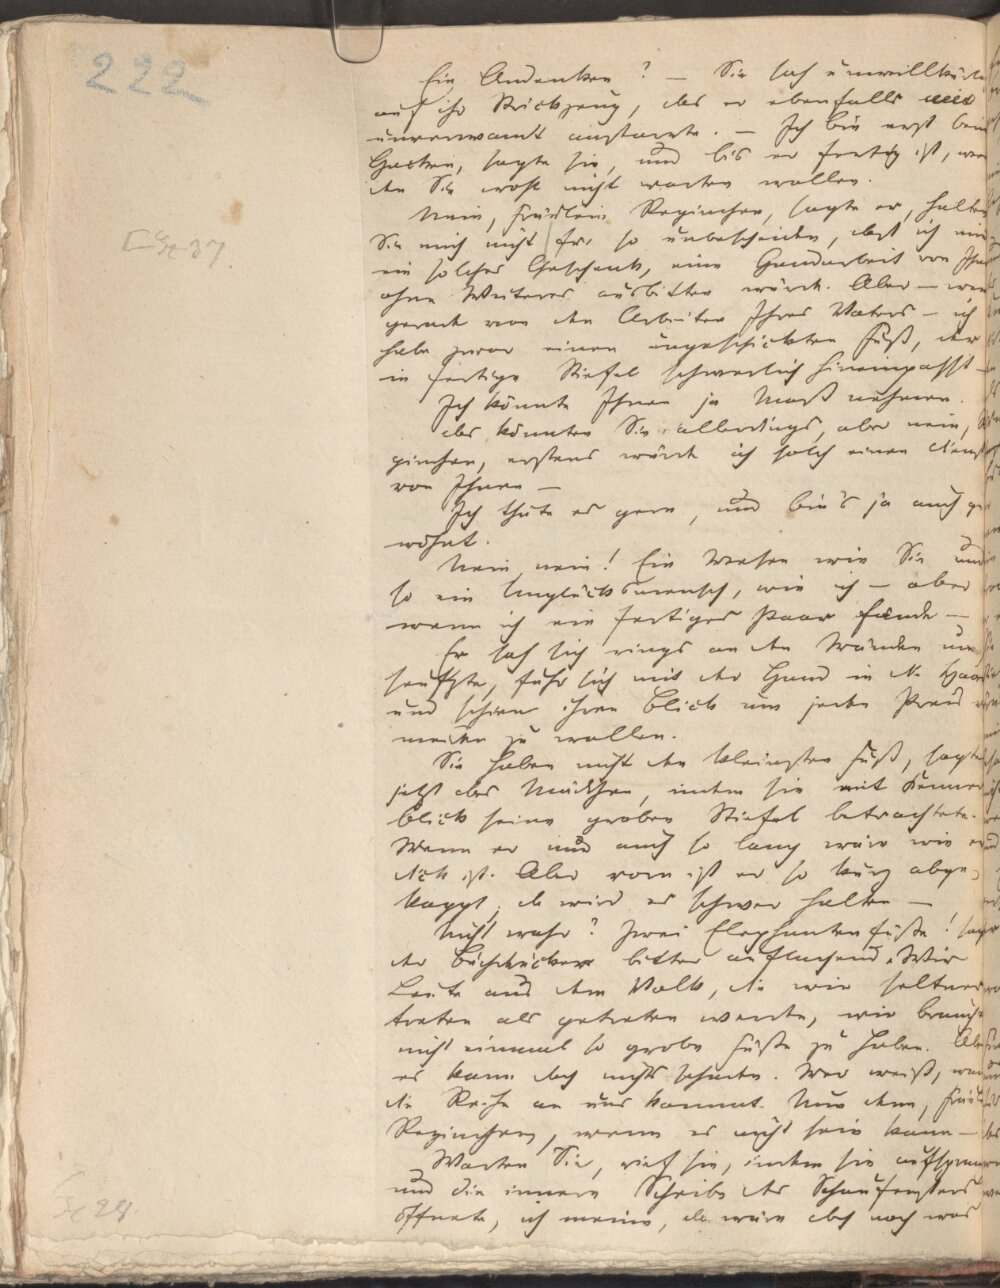 222
Ein Andenken? — Sie sah unwillkürlich
auf ihr Strickzeug, das er ebenfalls
unverwandt anstarrte. — Ich bin erst beim
Hacken, sagte sie, und bis er fertig ist, wer
den Sie wohl nicht warten wollen.
Nein, Fräulein Reginchen, sagte er, halten
Sie mich nicht für so unbescheiden, daß ich mir
ein solches Geschenk, eine Handarbeit von Ihnen
ohne Weiteres ausbitten würde. Aber — wenn
gerade von den Arbeiten Ihres Vaters — ich
habe zwar einen ungeschickten Fuß, der
in fertige Stiefel schwerlich hineinpasst —
Ich könnte Ihnen ja Maß nehmen.
Das könnten Sie allerdings, aber nein, Re
ginchen, erstens würde ich solch einen Dienst
von Ihnen —
Ich thäte es gern, und bin's ja auch ge
wöhnt.
Nein, nein! Ein Wesen wie Sie und
so ein Unglücksmensch, wie ich — aber
wenn ich ein fertiges Paar fände —
Er sah sich rings an den Wänden um,
seufzte, fuhr sich mit der Hand in die Haare
und schien ihren Blick um jeden Preis ver
meiden zu wollen.
Sie haben nicht den kleinsten Fuß, sagte
jetzt das Mädchen, indem sie mit Kenner
blick seine groben Stiefel betrachtete.
Wenn er nur auch so lang wäre wie er
dick ist. Aber vorn ist er so kurz abge-
kappt, da wird es schwer halten —
Nicht wahr? Zwei Elephantenfüße! sagte
der Buchdrucker bitter auflachend. Wir
Leute aus dem Volk, die wir seltner
treten als getreten werden, wir brauchten
nicht einmal so grobe Füße zu haben. Aber
es kann doch nichts schaden. Wer weiß, wann
die Reihe an uns kommt. Nun denn, Fräulein
Reginchen, wenn es nicht sein kann —
Warten Sie, rief sie, indem sie aufsprang
und die innere Scheibe des Schaufensters
öffnete, ich meine, da wäre doch noch was